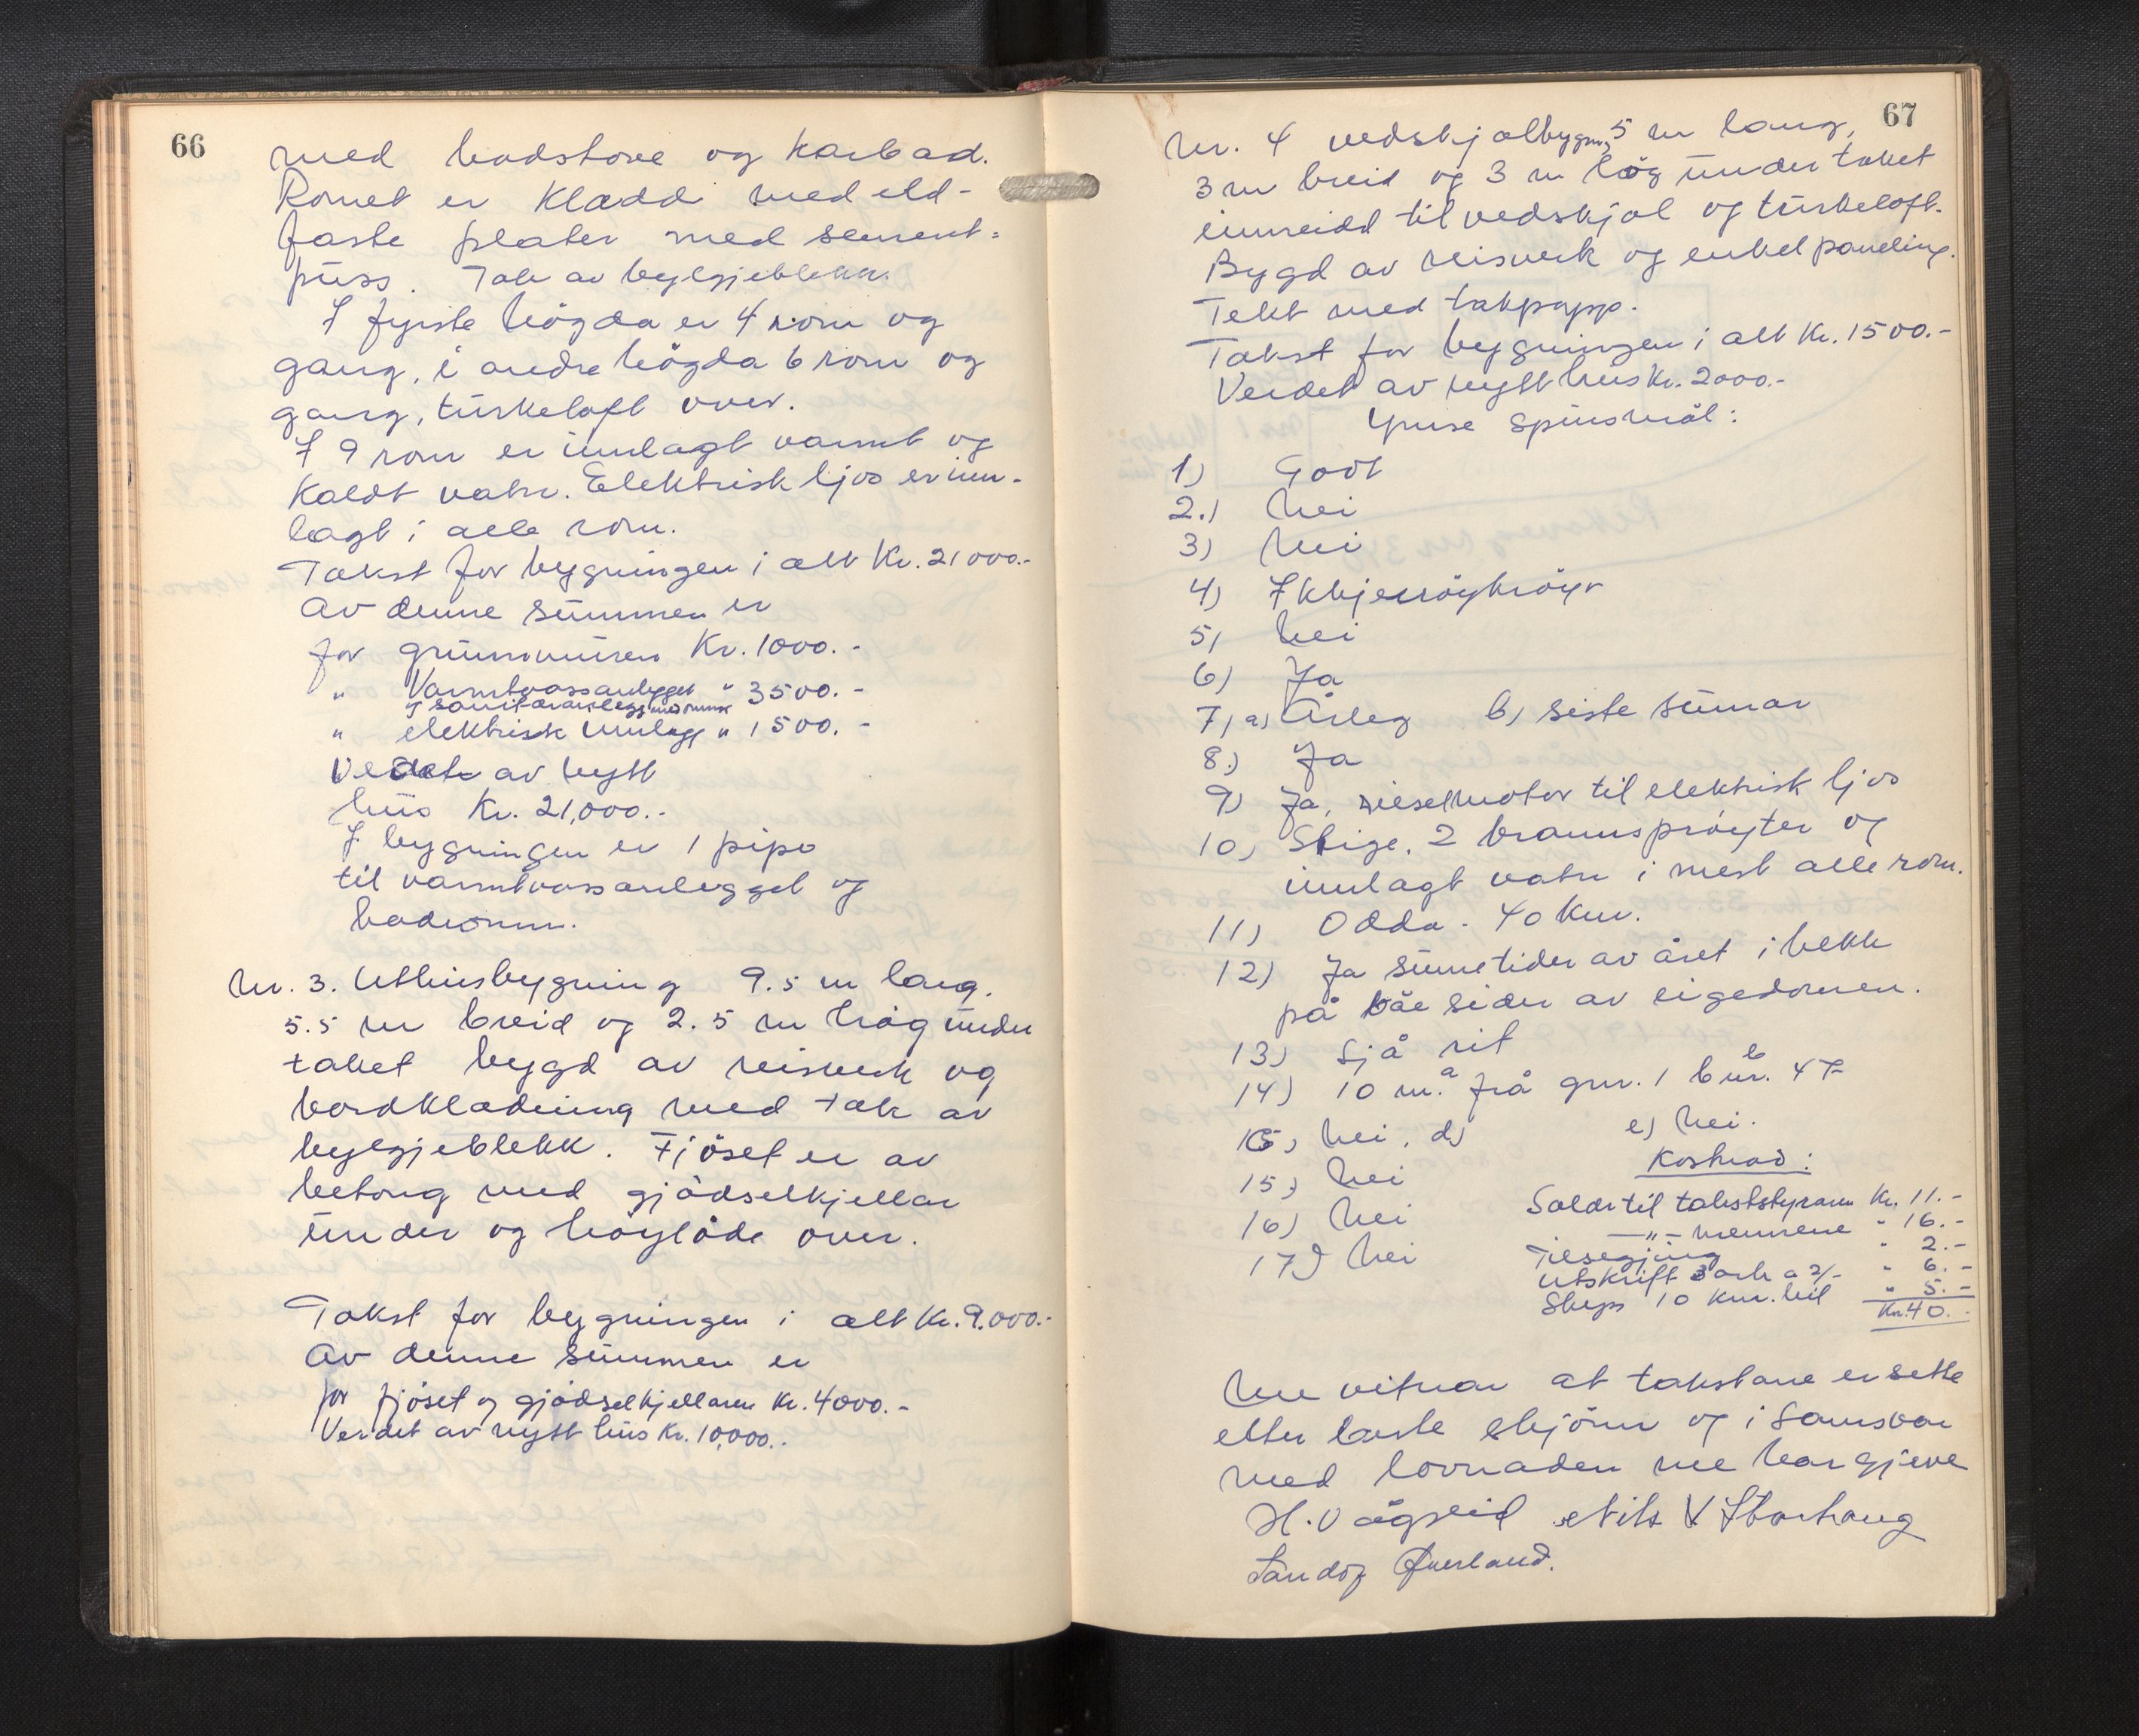 66
med badstove og karbad.
Romet er klædd med eld-
faste plater med sement-
puss. Tak av bylgjeblekk.
I fyrste högda er 4 rom og
gang, i andre högda 6 rom og
gang, turkeloft over.
I 9 rom er innlagt varmt og
kaldt vatn. Elektrisk ljos er inn-
lagt i alle rom.
Takst for bygningen i alt Kr. 21000.-
Av denne summen er
for grunnmuren Kr. 1000.-
" Varmtvassanlegget " 3500.-
og sanitæranlegg med
" elektrisk innlegg " 1500.-
Verdet av nytt
hus Kr. 21,000.-
I bygningen er 1 pipe
til varmtvassanlegget og
badeomn.
Nr. 3. Uthusbygning 9.5 m lang.
5.5 m breid og 2.5 m hög under
taket bygd av reisverk og
bordklædning med tak av
bylgjeblekk. Fjöset er av
betong med gjödselkjellar
under og höylöde over.
Takst for bygningen i alt Kr. 9.000.-
Av denne summen er
for fjöset og gjödselkjellaren Kr. 4000.-
Verdet av nytt hus Kr. 10,000.-
67
Nr. 4 vedskjolbygn, 5 m lang,
3 m breid og 3 m hög under taket
innreidd til vedskjol og turkeloft.
Bygd av reisverk og enkel paneling.
Tekt med takpapp.
Takst for bygningen i alt Kr. 1500.-
Verdet av nytt hus Kr. 2000.-
Ymse spursmål:
1) Godt
2.) Nei
3) Nei
4) I
5) Nei
6) Ja
7) a) Årleg b) siste sumar
8.) Ja
9) Ja, dieselmotor til elektrisk ljos
10) Stige. 2 brannspröyter og
innlagt vatn i mest alle rom.
11) Odda. 40 km.
12) Ja sumetider av året i bekk
på båe sider av eigedomen.
13) Sjå rit
14) 10 m. a frå gnr. 1 b nr. 47 b
c) Nei. d) e) Nei.
15) Nei
16) Nei
17) Nei
Kostnad:
Soldr til takststyraren Kr. 11.-
—"— mennene " 16.-
Tilsegjing " 2.-
Utskrift 3 ark a 2/- " 6.-
Skyss 10 km. bil " 5.-
Kr. 40.-
Me vitnar at takstane er sette
etter beste skjönn og i samsvar
med lovnaden me har gjeve
H. Vågslid Nils V Storhaug
Sandof Øverland.